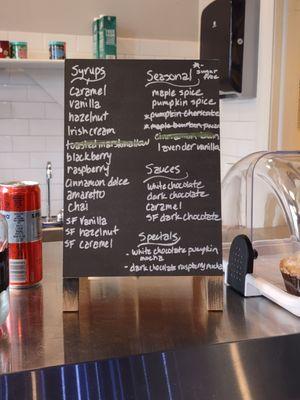 Syrups
caramel
vanilla
hazelnut
Irish cream
toasted marshmallow
blackberry
raspberry
cinnamon dolce
amaretto
chai
SF vanilla
SF hazelnut
SF caramel
Seasonal
*-sugar free
maple spice
pumpkin spice
*pumpkin cheesecake
*maple bourbon pecan
cinnamon bun
lavender vanilla
Sauces
white chocolate
dark chocolate
caramel
SF dark chocolate
Specials
- white chocolate pumpkin
mocha
- dark chocolate raspberry mocha